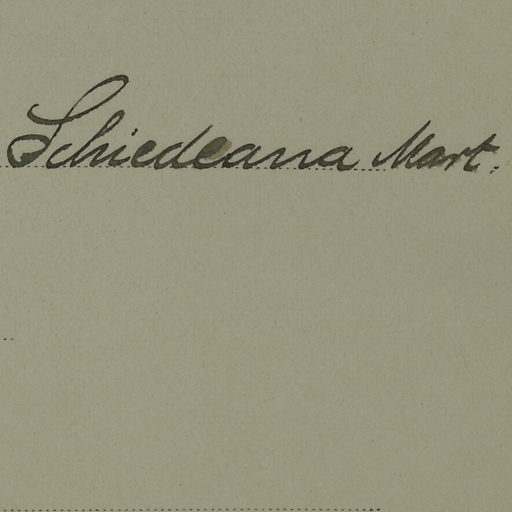 Schiedeana Mart.